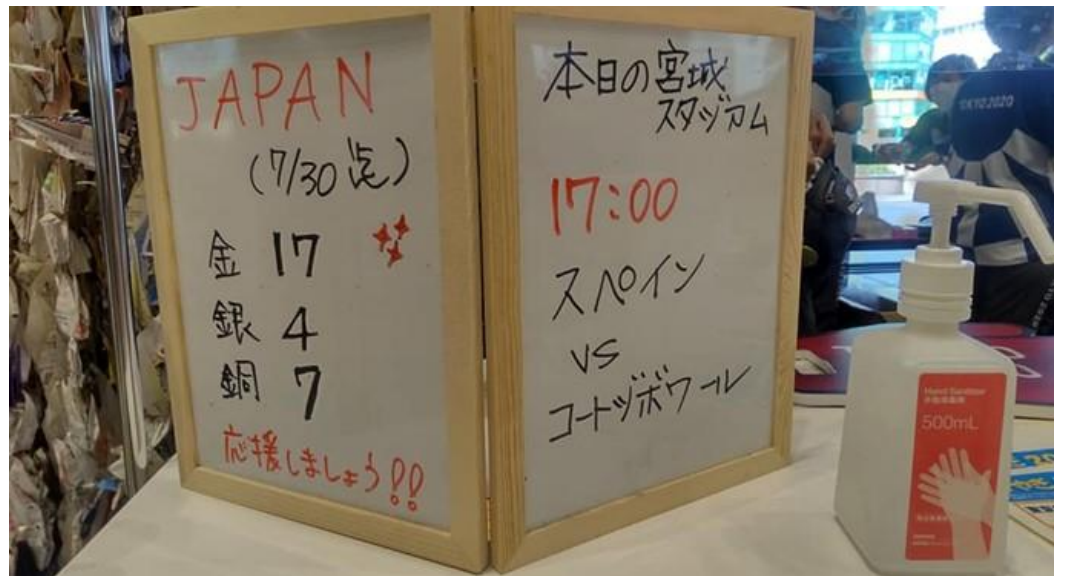 JAPAN
(7/30迄)
金 17
銀 4
銅 7
応援しましょう!!
本日の宮城
スタジアム
17:00
スペイン
VS
コートジボワール
TOKYO 2020
Hand Sanitizer
手指消毒剤
500mL